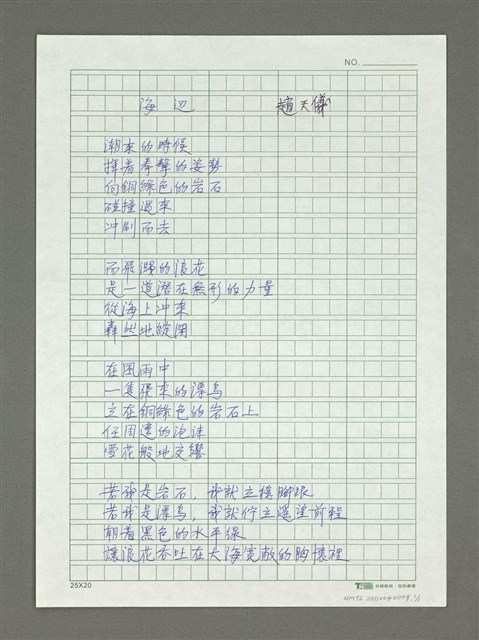 NO.
海边 趙天儀
潮來的時候
揮着拳擊的姿勢
向銅綠色的岩石
碰撞過來
冲刷而去
而飛濺的浪花
是一道潛在無形的力量
從海上冲來
轟然地綻開
在風雨中
一隻飛來的漂鳥
立在銅綠色的岩石上
任周遭的泡沫
雪花般地交響
若我是岩石，我就立穩腳跟
若我是漂鳥，我就佇立遥望前程
朝着黑色的水平線
讓浪花吞吐在大海寬敞的胸懷裡
25X20